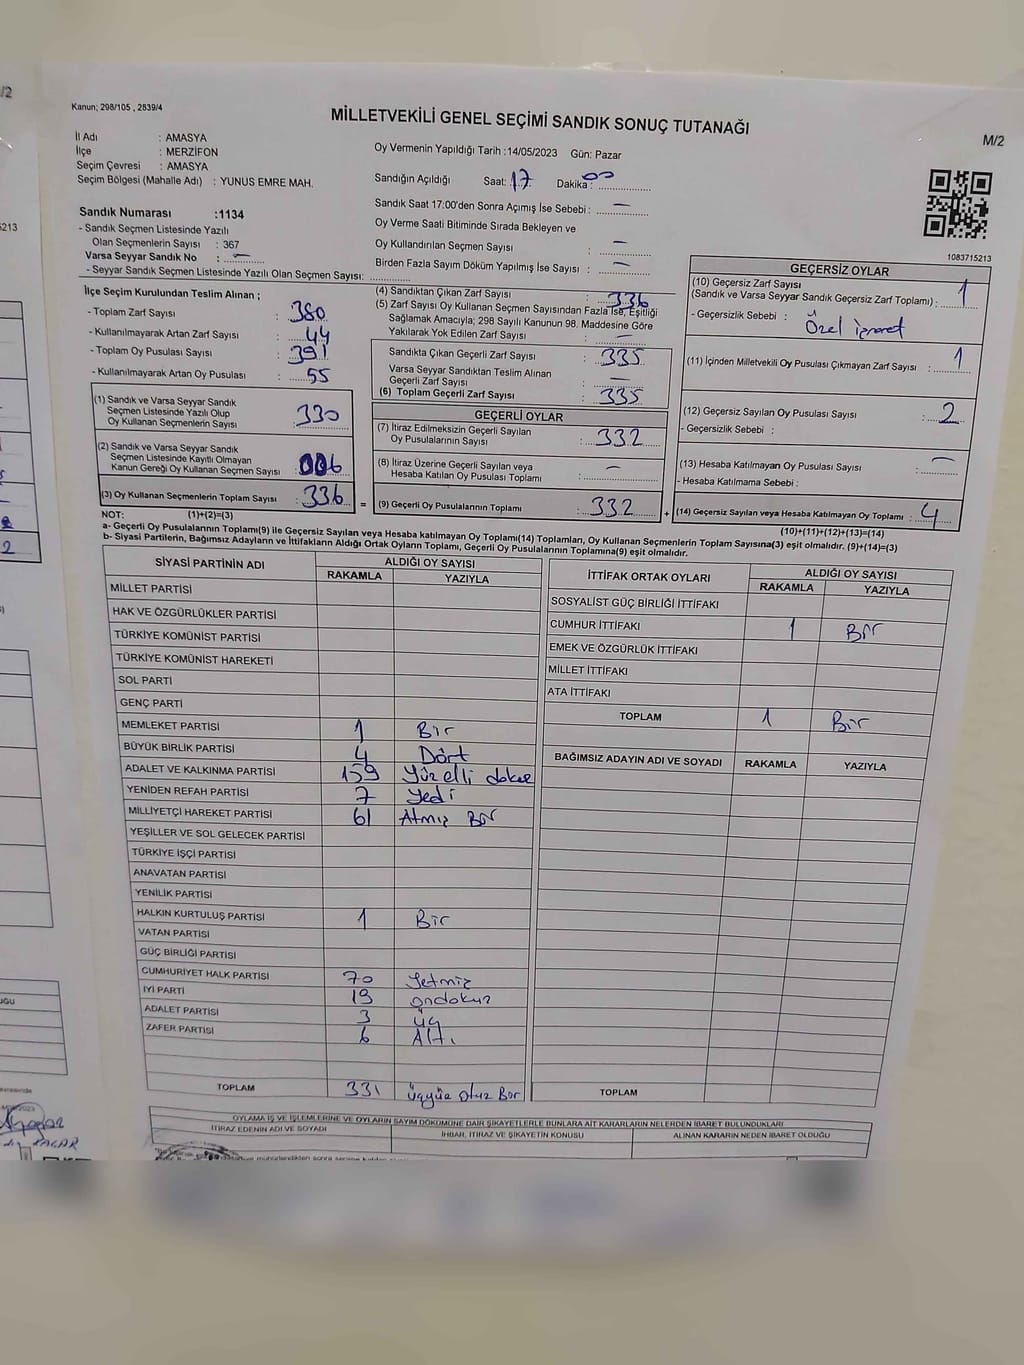 Kanun; 298/105 , 2839/4
MİLLETVEKİLİ GENEL SEÇİMİ SANDIK SONUÇ TUTANAĞI
M/2
İl Adı : AMASYA
İlçe : MERZİFON
Seçim Çevresi : AMASYA
Seçim Bölgesi (Mahalle Adı) : YUNUS EMRE MAH.
Sandık Numarası :1134
- Sandık Seçmen Listesinde Yazılı
Olan Seçmenlerin Sayısı : 367
Varsa Seyyar Sandık No : —
- Seyyar Sandık Seçmen Listesinde Yazılı Olan Seçmen Sayısı: ............
Oy Vermenin Yapıldığı Tarih :14/05/2023 Gün: Pazar
Sandığın Açıldığı Saat: 17 Dakika: 00
Sandık Saat 17:00'den Sonra Açımış İse Sebebi : —
Oy Verme Saati Bitiminde Sırada Bekleyen ve
Oy Kullandırılan Seçmen Sayısı : —
Birden Fazla Sayım Döküm Yapılmış İse Sayısı : —
1083715213
İlçe Seçim Kurulundan Teslim Alınan ;
- Toplam Zarf Sayısı : 380
- Kullanılmayarak Artan Zarf Sayısı : 44
- Toplam Oy Pusulası Sayısı : 391
- Kullanılmayarak Artan Oy Pusulası : 55
(1) Sandık ve Varsa Seyyar Sandık
Seçmen Listesinde Yazılı Olup
Oy Kullanan Seçmenlerin Sayısı : 330
(2) Sandık ve Varsa Seyyar Sandık
Seçmen Listesinde Kayıtlı Olmayan
Kanun Gereği Oy Kullanan Seçmen Sayısı : 006
(3) Oy Kullanan Seçmenlerin Toplam Sayısı : 336
(4) Sandıktan Çıkan Zarf Sayısı : 336
(5) Zarf Sayısı Oy Kullanan Seçmen Sayısından Fazla İse, Eşitliği
Sağlamak Amacıyla; 298 Sayılı Kanunun 98. Maddesine Göre
Yakılarak Yok Edilen Zarf Sayısı : —
Sandıkta Çıkan Geçerli Zarf Sayısı : 335
Varsa Seyyar Sandıktan Teslim Alınan
Geçerli Zarf Sayısı : —
(6) Toplam Geçerli Zarf Sayısı : 335
GEÇERLİ OYLAR
(7) İtiraz Edilmeksizin Geçerli Sayılan
Oy Pusulalarının Sayısı : 332
(8) İtiraz Üzerine Geçerli Sayılan veya
Hesaba Katılan Oy Pusulası Toplamı : —
= (9) Geçerli Oy Pusulalarının Toplamı : 332 +
GEÇERSİZ OYLAR
(10) Geçersiz Zarf Sayısı
(Sandık ve Varsa Seyyar Sandık Geçersiz Zarf Toplamı) : 1
- Geçersizlik Sebebi : Özel işaret
(11) İçinden Milletvekili Oy Pusulası Çıkmayan Zarf Sayısı : 1
(12) Geçersiz Sayılan Oy Pusulası Sayısı : 2
- Geçersizlik Sebebi :
(13) Hesaba Katılmayan Oy Pusulası Sayısı : —
- Hesaba Katılmama Sebebi :
(14) Geçersiz Sayılan veya Hesaba Katılmayan Oy Toplamı : 4
NOT: (1)+(2)=(3)
(10)+(11)+(12)+(13)=(14)
a- Geçerli Oy Pusulalarının Toplamı(9) ile Geçersiz Sayılan veya Hesaba katılmayan Oy Toplamı(14) Toplamları, Oy Kullanan Seçmenlerin Toplam Sayısına(3) eşit olmalıdır. (9)+(14)=(3)
b- Siyasi Partilerin, Bağımsız Adayların ve İttifakların Aldığı Oyların Toplamı, Geçerli Oy Pusulalarının Toplamına(9) eşit olmalıdır.
SİYASİ PARTİNİN ADI ALDIĞI OY SAYISI
RAKAMLA YAZIYLA
MİLLET PARTİSİ
HAK VE ÖZGÜRLÜKLER PARTİSİ
TÜRKİYE KOMÜNİST PARTİSİ
TÜRKİYE KOMÜNİST HAREKETİ
SOL PARTİ
GENÇ PARTİ
MEMLEKET PARTİSİ 1 Bir
BÜYÜK BİRLİK PARTİSİ 4 Dört
ADALET VE KALKINMA PARTİSİ 159 Yüzelli dokuz
YENİDEN REFAH PARTİSİ 7 Yedi
MİLLİYETÇİ HAREKET PARTİSİ 61 Atmış Bir
YEŞİLLER VE SOL GELECEK PARTİSİ
TÜRKİYE İŞÇİ PARTİSİ
ANAVATAN PARTİSİ
YENİLİK PARTİSİ
HALKIN KURTULUŞ PARTİSİ 1 Bir
VATAN PARTİSİ
GÜÇ BİRLİĞİ PARTİSİ
CUMHURİYET HALK PARTİSİ 70 Yetmiş
İYİ PARTİ 19 ondokuz
ADALET PARTİSİ 3 üç
ZAFER PARTİSİ 6 Altı
TOPLAM 331 üçyüz otuz Bir
İTTİFAK ORTAK OYLARI ALDIĞI OY SAYISI
RAKAMLA YAZIYLA
SOSYALİST GÜÇ BİRLİĞİ İTTİFAKI
CUMHUR İTTİFAKI 1 Bir
EMEK VE ÖZGÜRLÜK İTTİFAKI
MİLLET İTTİFAKI
ATA İTTİFAKI
TOPLAM 1 Bir
BAĞIMSIZ ADAYIN ADI VE SOYADI RAKAMLA YAZIYLA
TOPLAM
OYLAMA İŞ VE İŞLEMLERİNE VE OYLARIN SAYIM DÖKÜMÜNE DAİR ŞİKAYETLERLE BUNLARA AİT KARARLARIN NELERDEN İBARET BULUNDUKLARI
İTİRAZ EDENİN ADI VE SOYADI İHBAR, İTİRAZ VE ŞİKAYETİN KONUSU ALINAN KARARIN NEDEN İBARET OLDUĞU